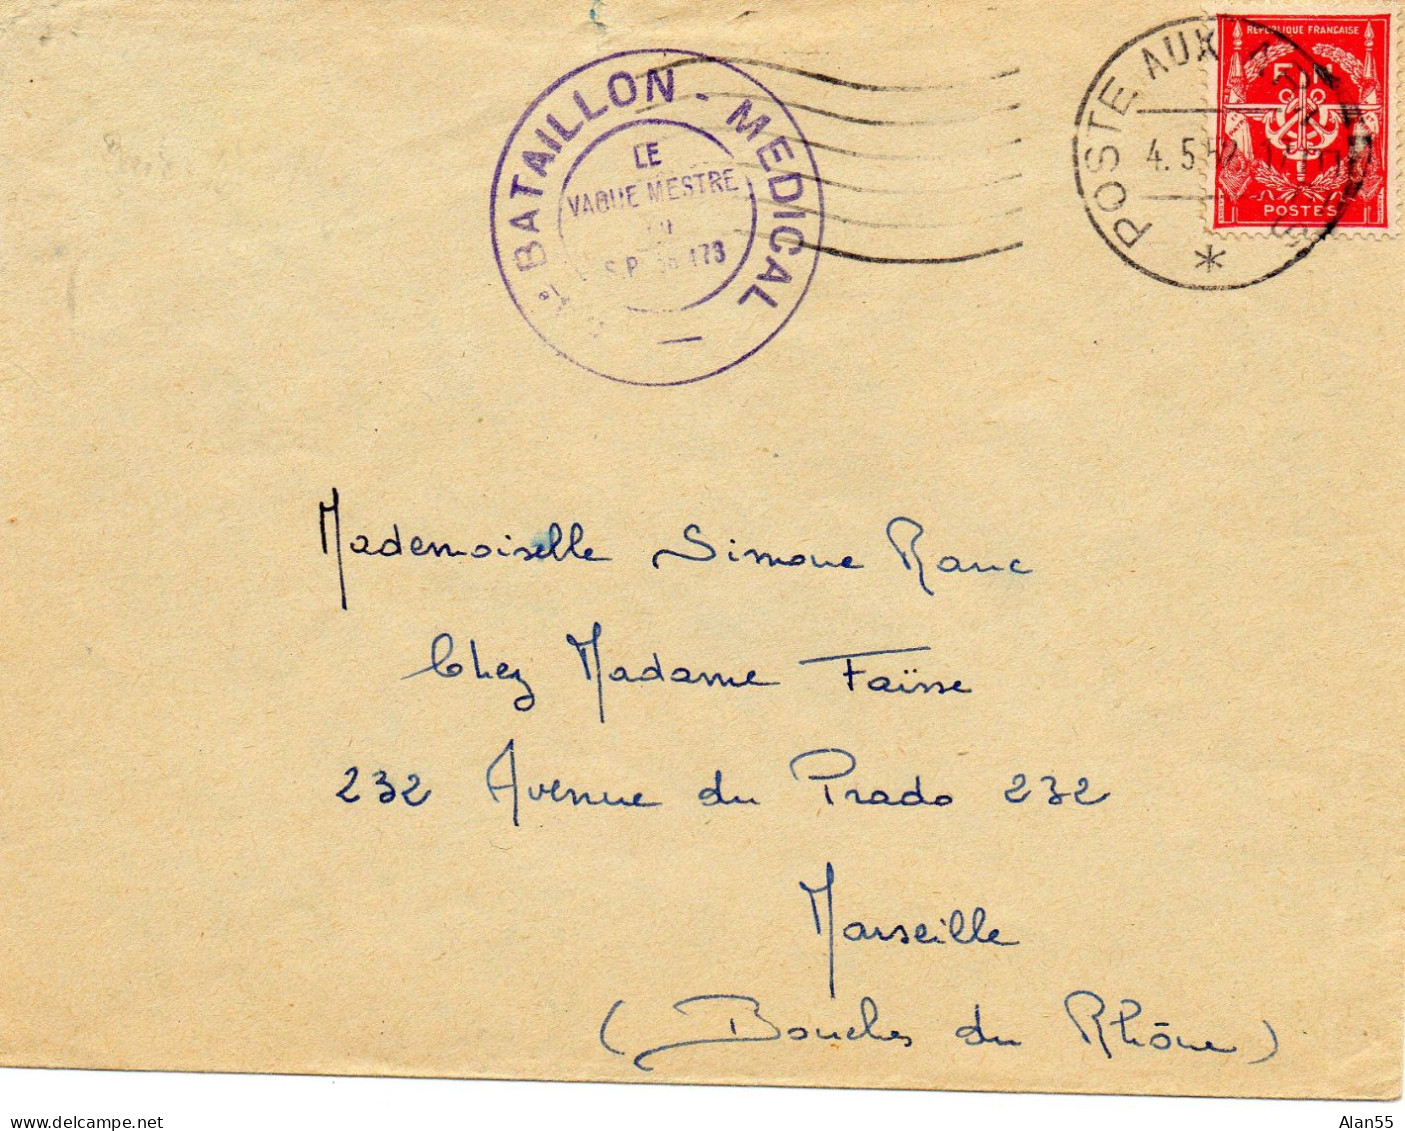 BATAILLON - MEDICAL
LE
VAGUEMESTRE
S.P. 173
POSTE AUX
4.5
REPUBLIQUE FRANÇAISE
F M
POSTES
Mademoiselle Simone Ranc
Chez Madame Faïsse
232 Avenue du Prado 232
Marseille
(Bouches du Rhône)
delcampe.net
Alan55